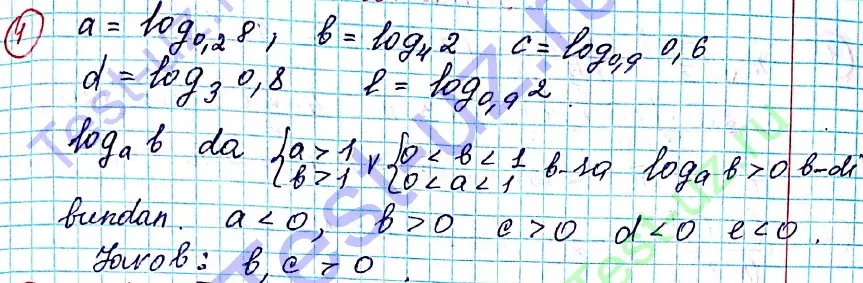 4 a = log₀,₂ 8, b = log₄ 2 c = log₀,₉ 0,6
d = log₃ 0,8 l = log₀,₉ 2
logₐ b da {a > 1 b > 1 v {0 < b < 1 0 < a < 1 b-sa logₐ b > 0 b-di
bundan. a < 0, b > 0 c > 0 d < 0 e < 0.
Javob: b, c > 0.
Test-uz.ru